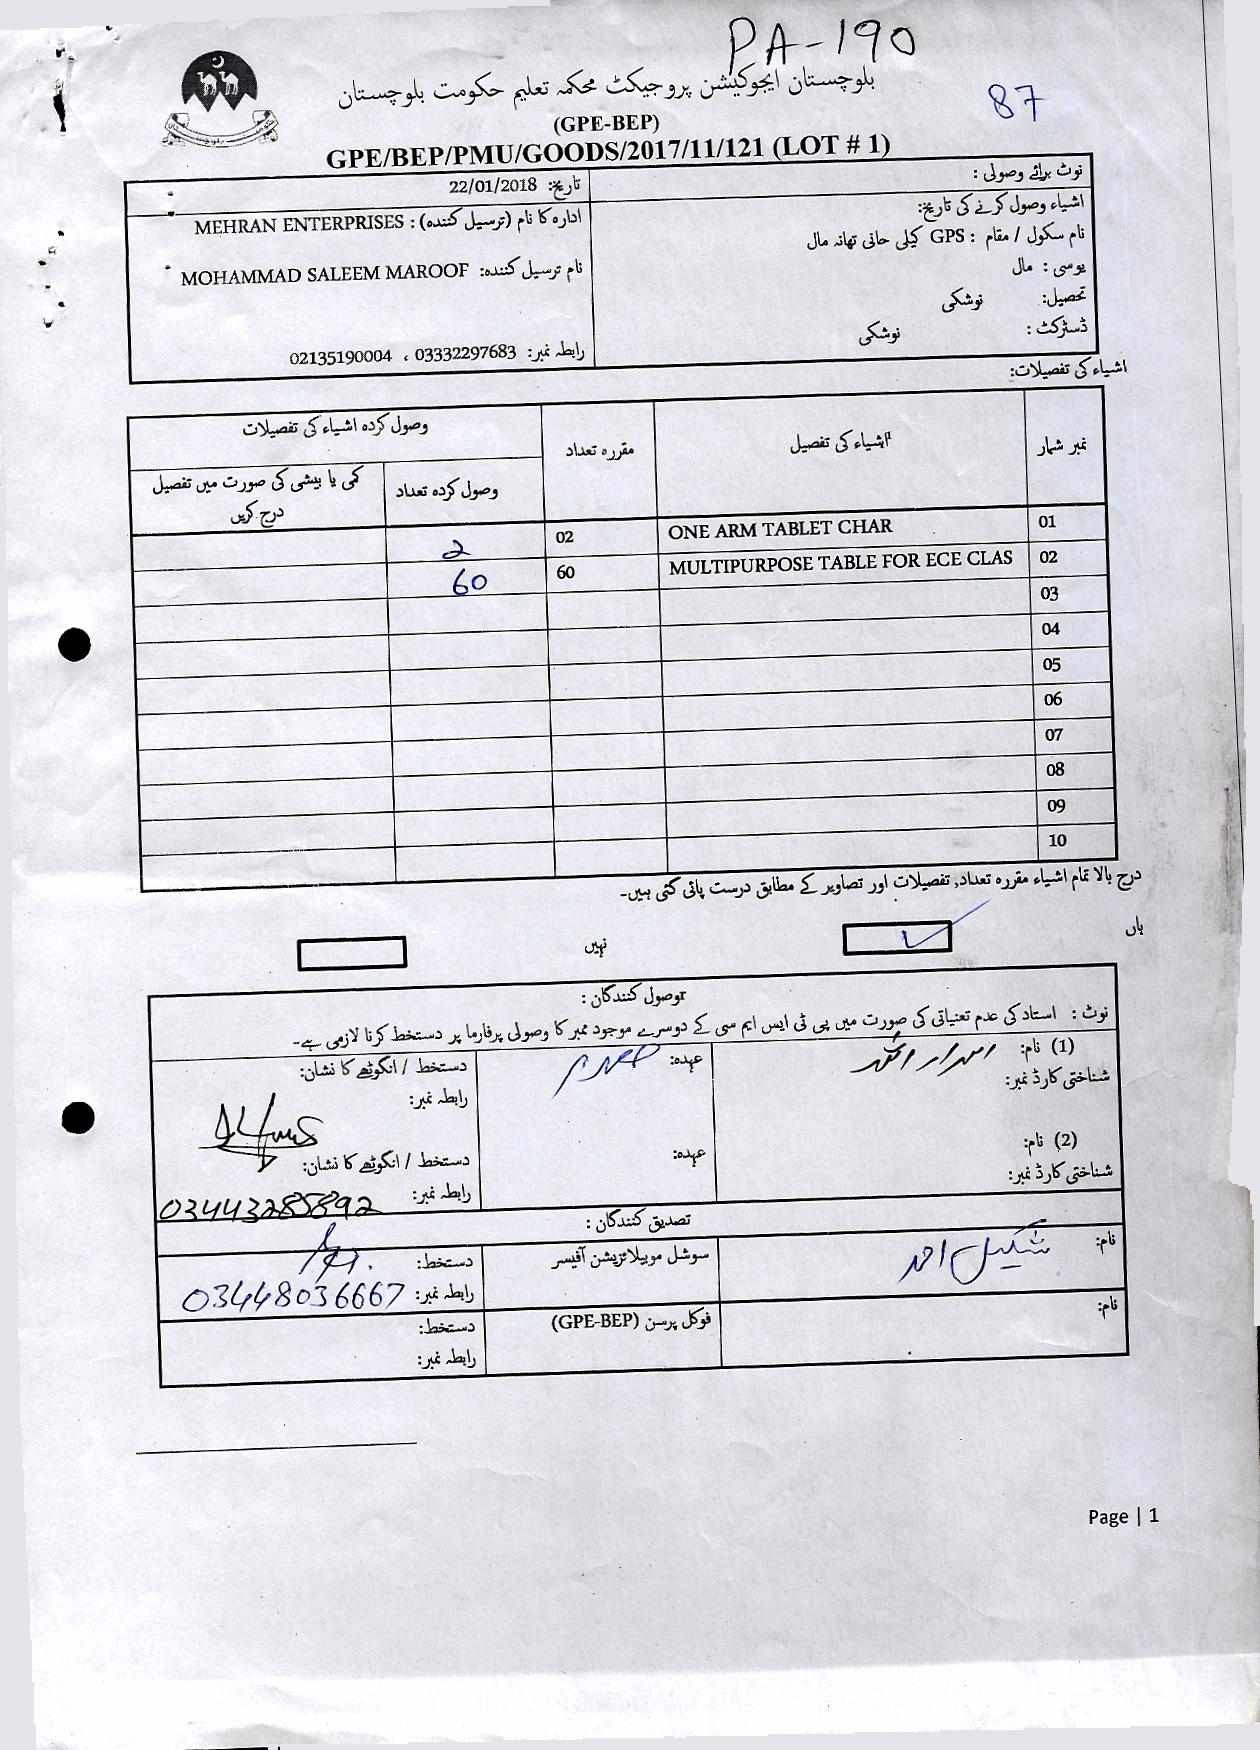 PA-190
87
بلوچستان ایجوکیشن پروجیکٹ محکمہ تعلیم حکومت بلوچستان
(GPE-BEP)
GPE/BEP/PMU/GOODS/2017/11/121 (LOT # 1)
نوٹ برائے وصولی :
اشیاء وصول کرنے کی تاریخ:
نام سکول / مقام : GPS کیلی حانی تھانہ مال
یوسی : مال
تحصیل: نوشکی
ڈسٹرکٹ : نوشکی
تاریخ: 22/01/2018
ادارہ کا نام (ترسیل کنندہ) : MEHRAN ENTERPRISES
نام ترسیل کنندہ: MOHAMMAD SALEEM MAROOF
رابطہ نمبر: 03332297683 ، 02135190004
اشیاء کی تفصیلات:
نمبر شمار اشیاء کی تفصیل مقررہ تعداد وصول کردہ اشیاء کی تفصیلات
وصول کردہ تعداد کمی یا بیشی کی صورت میں تفصیل درج کریں
01 ONE ARM TABLET CHAR 02 2
02 MULTIPURPOSE TABLE FOR ECE CLAS 60 60
03
04
05
06
07
08
09
10
درج بالا تمام اشیاء مقررہ تعداد, تفصیلات اور تصاویر کے مطابق درست پائی گئی ہیں۔
ہاں ✓ نہیں
وصول کنندگان :
نوٹ : استاد کی عدم تعنیاتی کی صورت میں پی ٹی ایس ایم سی کے دوسرے موجود ممبر کا وصولی پرفارما پر دستخط کرنا لازمی ہے۔
(1) نام: عہدہ: دستخط / انگوٹھے کا نشان:
شناختی کارڈ نمبر: رابطہ نمبر:
(2) نام: عہدہ: دستخط / انگوٹھے کا نشان:
شناختی کارڈ نمبر: رابطہ نمبر: 03443285892
تصدیق کنندگان :
نام: شکیل احمد سوشل موبیلائزیشن آفیسر دستخط:
رابطہ نمبر: 03448036667
نام: فوکل پرسن (GPE-BEP) دستخط:
رابطہ نمبر:
Page | 1